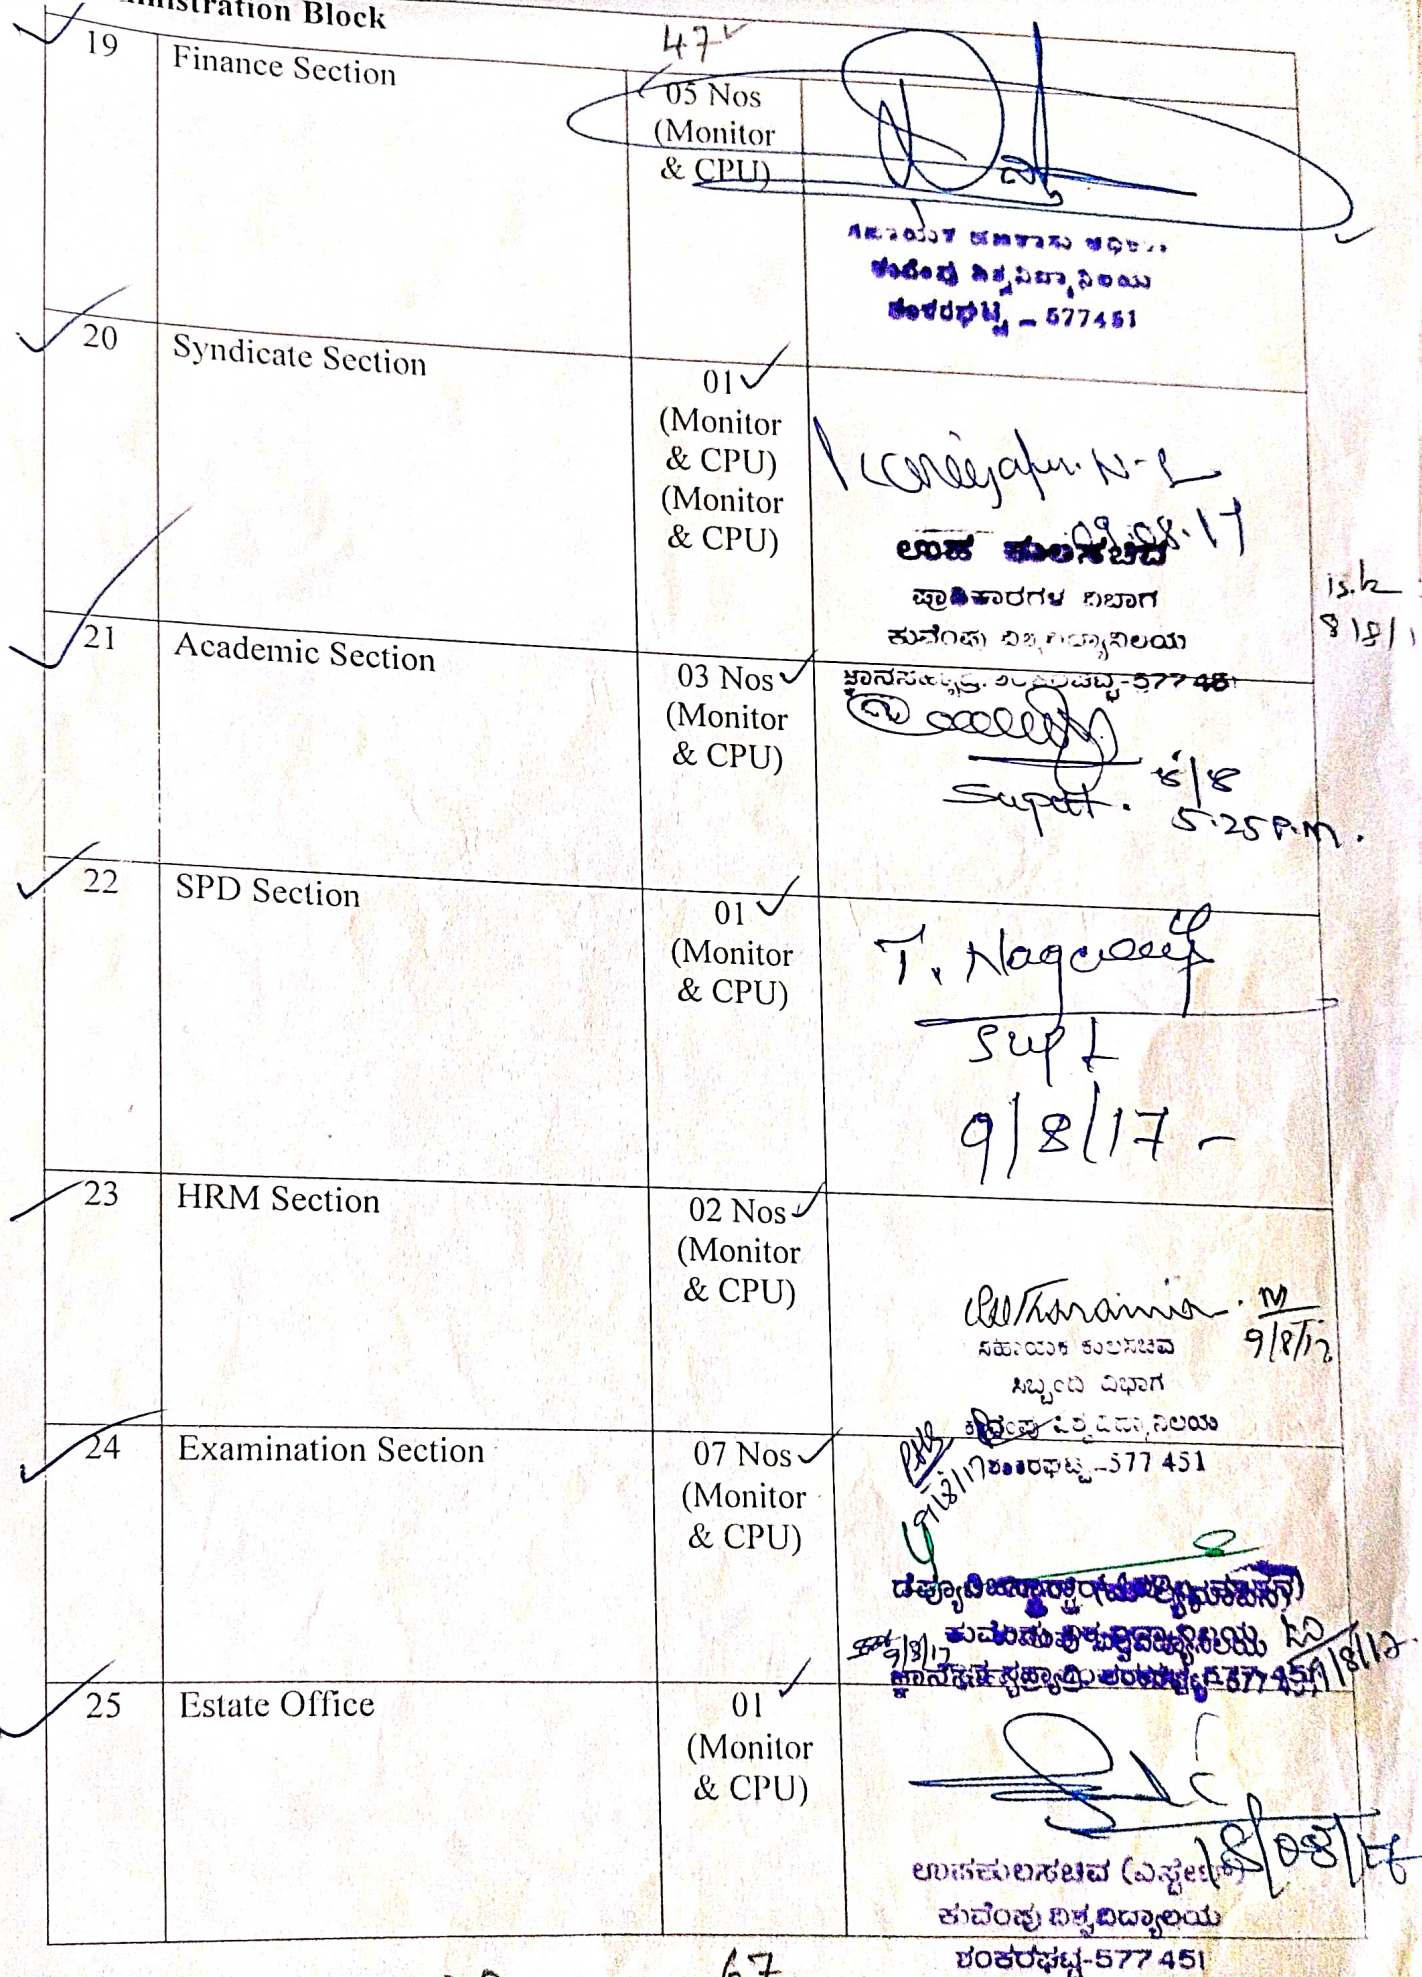 Block
47
19 Finance Section
05 Nos
(Monitor
& CPU)
ಕುವೆಂಪು ವಿಶ್ವವಿದ್ಯಾನಿಲಯ
ಶಂಕರಘಟ್ಟ - 577451
20 Syndicate Section
01
(Monitor
& CPU)
(Monitor
& CPU)
09.08.17
ಉಪ ಕುಲಸಚಿವ
ಪ್ರಾಧಿಕಾರಗಳ ವಿಭಾಗ
ಕುವೆಂಪು ವಿಶ್ವವಿದ್ಯಾನಿಲಯ
577 451
21 Academic Section
03 Nos
(Monitor
& CPU)
Supdt. 8/8
5.25 P.m.
22 SPD Section
01
(Monitor
& CPU)
T. Nagaraj
Supt
9/8/17 -
23 HRM Section
02 Nos
(Monitor
& CPU)
9/8/17
ಸಹಾಯಕ ಕುಲಸಚಿವ
ಸಿಬ್ಬಂದಿ ವಿಭಾಗ
ಕುವೆಂಪು ವಿಶ್ವವಿದ್ಯಾನಿಲಯ
ಶಂಕರಘಟ್ಟ-577 451
24 Examination Section
07 Nos
(Monitor
& CPU)
9/8/17
25 Estate Office
01
(Monitor
& CPU)
ಉಪಕುಲಸಚಿವ
ಕುವೆಂಪು ವಿಶ್ವವಿದ್ಯಾಲಯ
ಶಂಕರಘಟ್ಟ-577 451
67